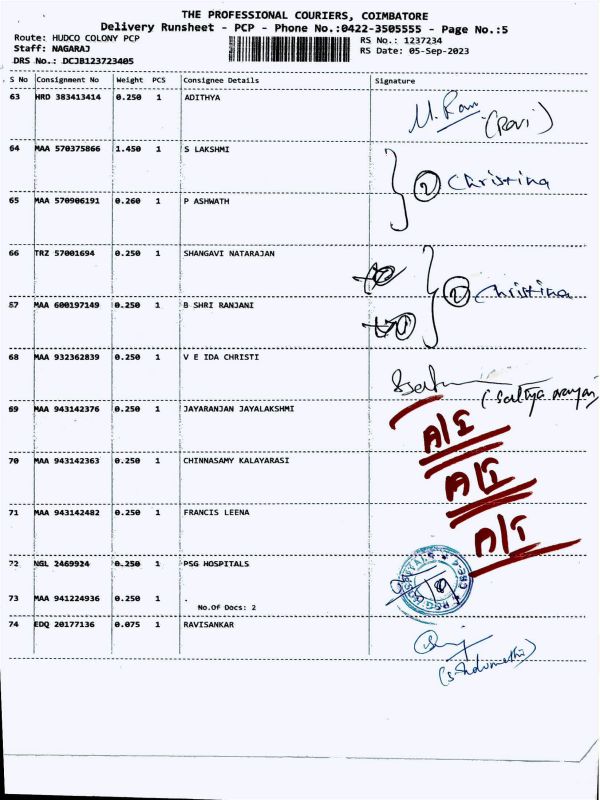 THE PROFESSIONAL COURIERS, COIMBATORE
Delivery Runsheet - PCP - Phone No.:0422-3505555 - Page No.:5
Route: HUDCO COLONY PCP
RS No.: 1237234
Staff: NAGARAJ
RS Date: 05-Sep-2023
DRS No.: DCJB123723405
S No Consignment No Weight PCS Consignee Details Signature
63 HRD 383413414 0.250 1 ADITHYA
M. Ram (Ravi)
64 MAA 570375866 1.450 1 S LAKSHMI
2 Christina
65 MAA 570906191 0.260 1 P ASHWATH
66 TRZ 57001694 0.250 1 SHANGAVI NATARAJAN
2 Christina
67 MAA 600197149 0.250 1 B SHRI RANJANI
68 MAA 932362839 0.250 1 V E IDA CHRISTI
69 MAA 943142376 0.250 1 JAYARANJAN JAYALAKSHMI
A/I
70 MAA 943142363 0.250 1 CHINNASAMY KALAYARASI
A/I
71 MAA 943142482 0.250 1 FRANCIS LEENA
A/I
72 NGL 2469924 0.250 1 PSG HOSPITALS
73 MAA 941224936 0.250 1 .
No.Of Docs: 2
74 EDQ 20177136 0.075 1 RAVISANKAR